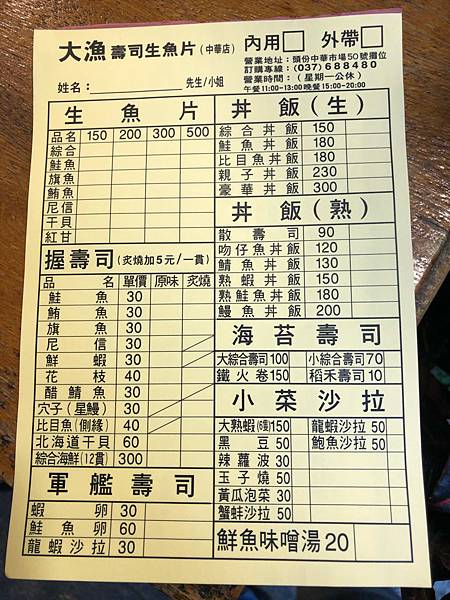 大漁壽司生魚片(中華店) 內用□ 外帶□
營業地址:頭份中華市場50號攤位
訂購專線:(037)688480
營業時間:(星期一公休)
姓名: 先生/小姐
午餐11:00-13:00晚餐15:00-20:00
生魚片
品名 150 200 300 500
綜合
鮭魚
旗魚
鮪魚
尼信
干貝
紅甘
握壽司(炙燒加5元/一貫)
品名 單價 原味 炙燒
鮭魚 30
鮪魚 30
旗魚 30
尼信 30
鮮蝦 30
花枝 40
醋鯖魚 30
穴子(星鰻) 30
比目魚(側緣) 40
北海道干貝 60
綜合海鮮(12貫) 300
軍艦壽司
蝦卵 30
鮭魚卵 60
龍蝦沙拉 30
丼飯(生)
綜合丼飯 150
鮭魚丼飯 180
比目魚丼飯 180
親子丼飯 230
豪華丼飯 300
丼飯(熟)
散壽司 90
吻仔魚丼飯 120
鯖魚丼飯 130
熟蝦丼飯 150
熟鮭魚丼飯 180
鰻魚丼飯 200
海苔壽司
大綜合壽司100 小綜合壽司70
鐵火卷150 稻禾壽司10
小菜沙拉
大熟蝦(6隻)150 龍蝦沙拉 50
黑豆 50 鮑魚沙拉 50
辣蘿波 30
玉子燒 50
黃瓜泡菜 30
蟹蚌沙拉 50
鮮魚味噌湯20